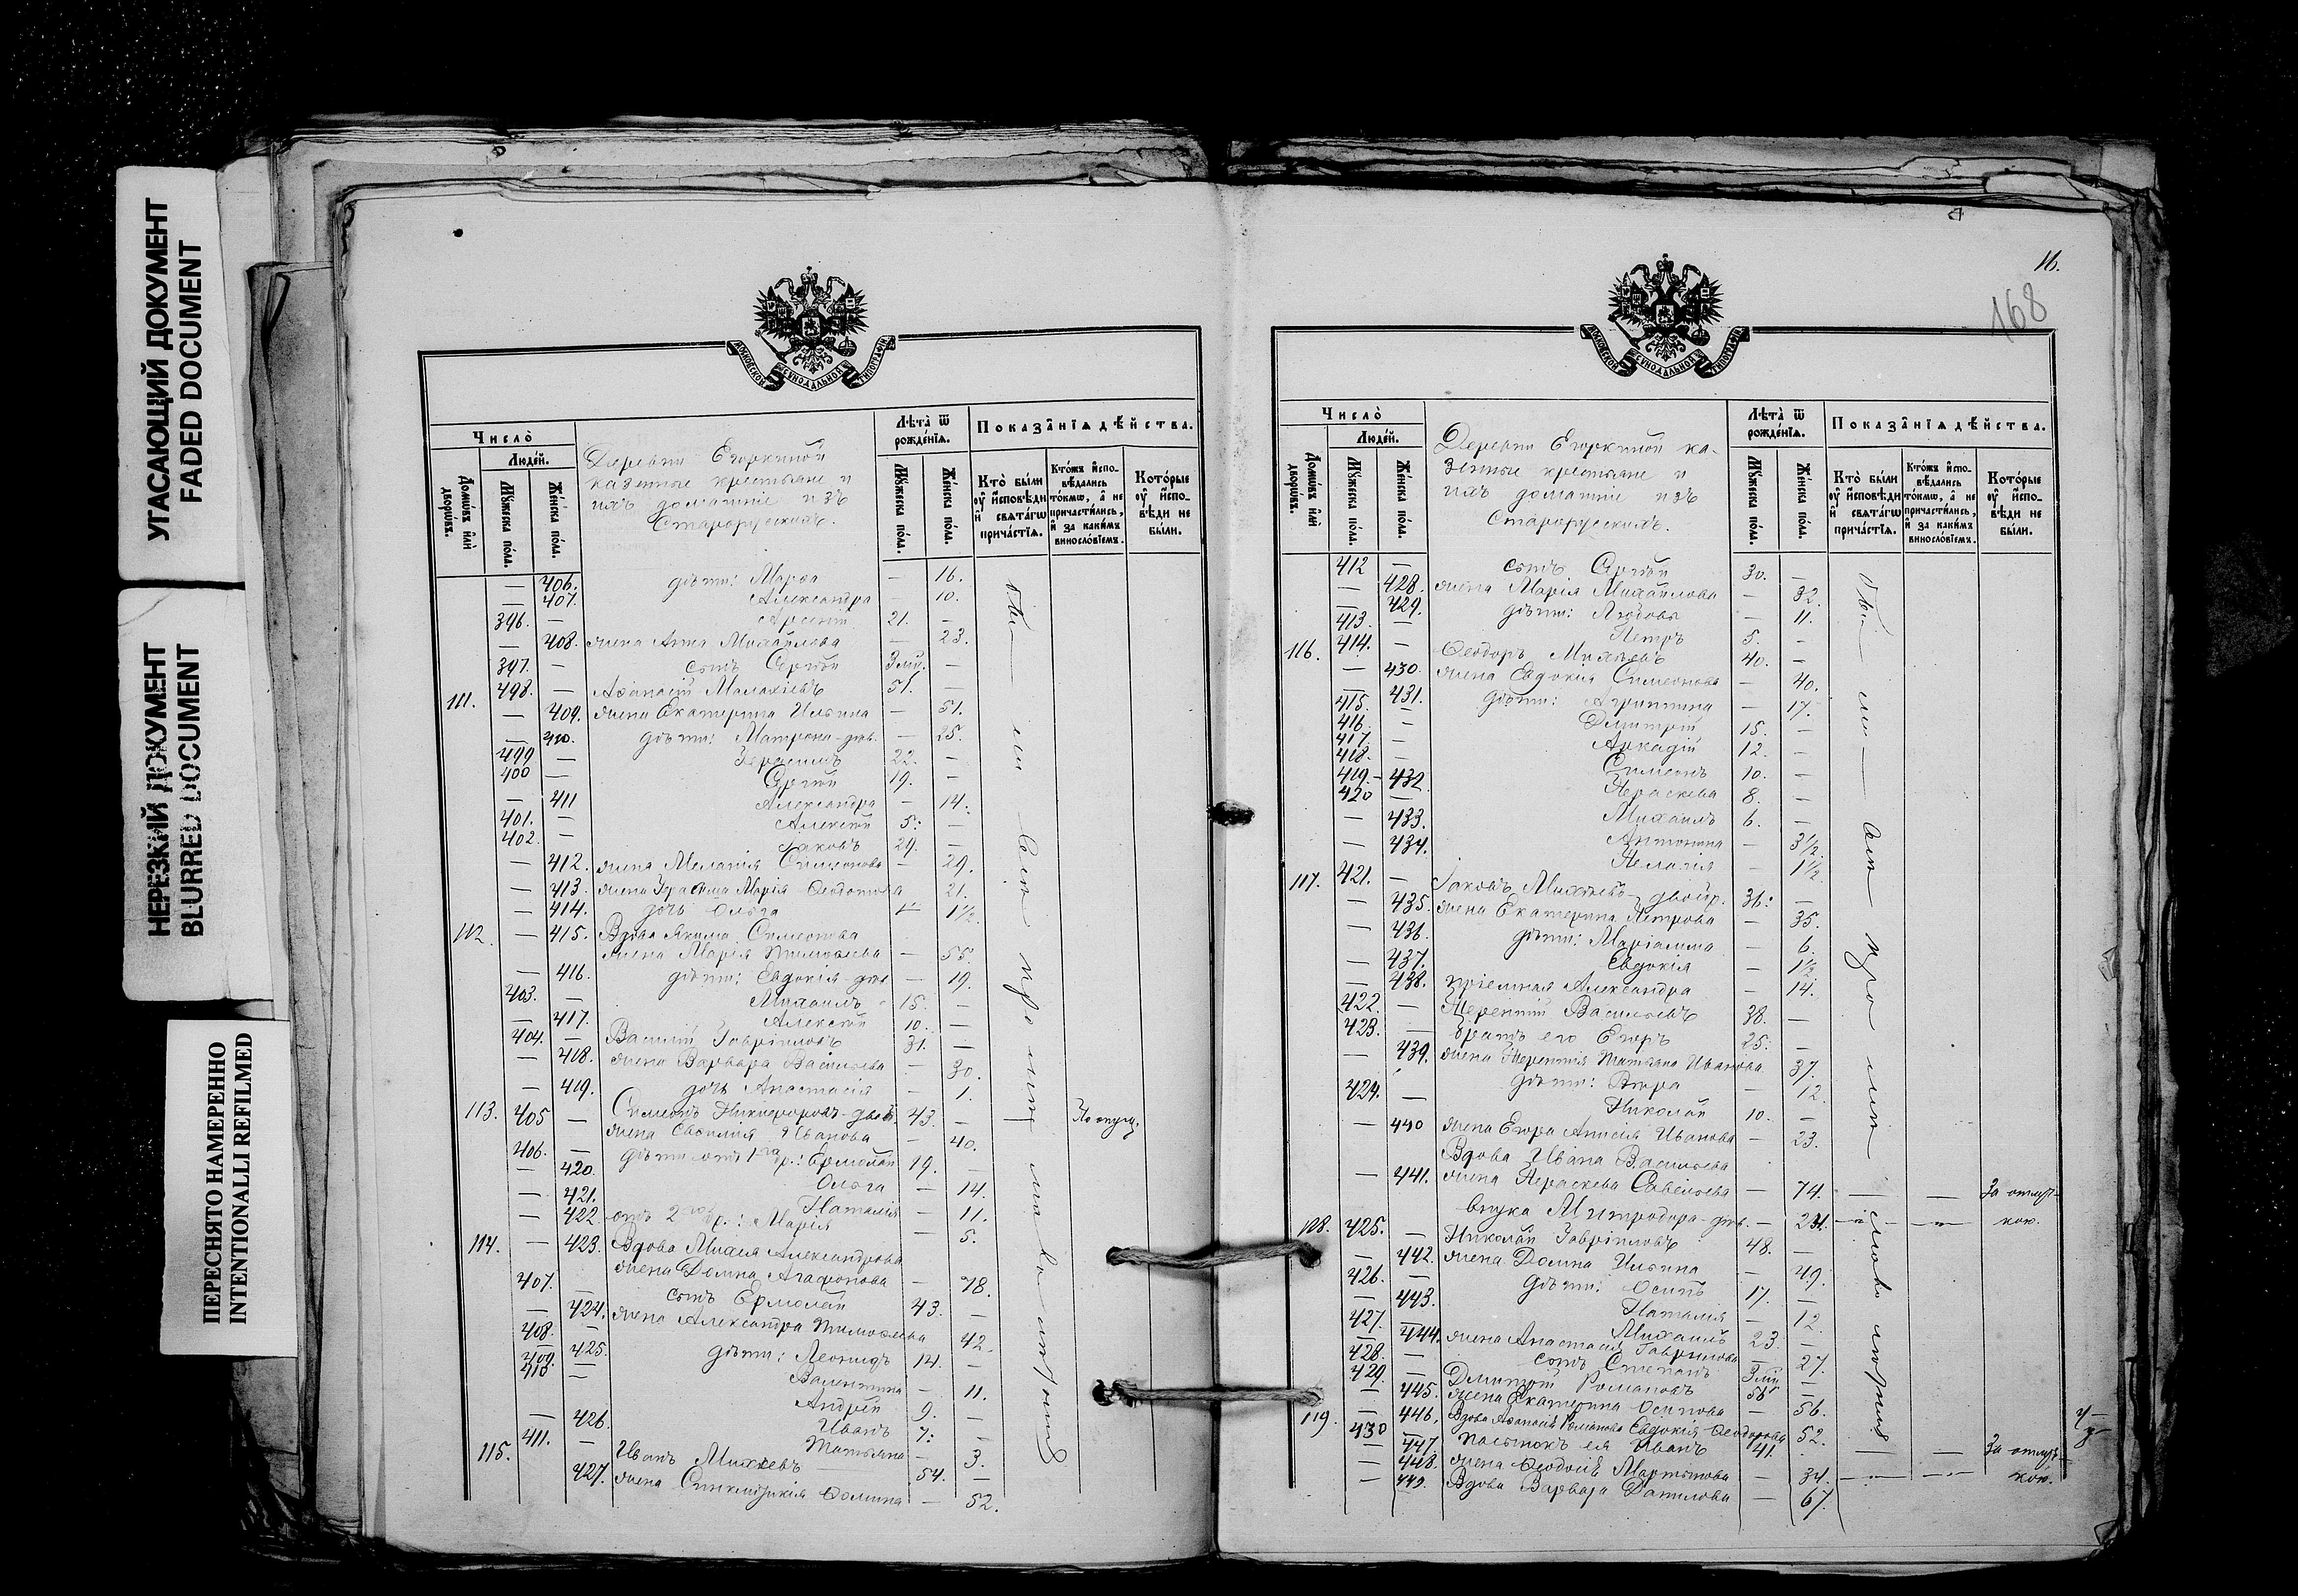 УГАСАЮЩИЙ ДОКУМЕНТ
FADED DOCUMENT
НЕРЕЗКИЙ ДОКУМЕНТ
BLURRED DOCUMENT
ПЕРЕСНЯТО НАМЕРЕННО
INTENTIONALLI REFILMED
МОСКОВСКОЙ СѴНОДАЛЬНОЙ ТИПОГРАФІИ
Число̀
Люде́й.
Домѡ́въ и҆лѝ дворѡ́въ.
Мꙋ́жеска по́ла.
Же́нска по́ла.
Деревни Егоркиной
казенные крестьяне и
ихъ домашніе изъ
Старорусскихъ.
Лѣ́та ѿ рожде́нїѧ.
Мꙋ́жеска по́ла.
Же́нска по́ла.
Показа̑нїѧ дѣ́йства.
Кто̀ бы́ли ᲂу҆ и҆сповѣ́ди и҆ свѧта́гѡ прича́стїѧ.
Кто́жъ и҆спо-вѣ́дались то́кмѡ, а҆ не причасти́лись, и҆ за каки́мъ виносло́вїемъ.
Кото́рые ᲂу҆ и҆спо-вѣ́ди не бы́ли.
— 406. дѣти: Марѳа — 16.
— 407. Александра — 10.
396. — Арсеній 21. —
— 408. жена Анна Михайлова — 23.
397. — сынъ Сергѣй —
111. 498. — Аѳанасій Малахіевъ 51. —
— 409. жена Екатерина Ильина — 51.
— 410. дѣти: Матрона — 25.
499 — Герасимъ 22. —
400 — Сергѣй 19. —
— 411 Александра — 14.
401. — Алексѣй 5. —
402. — Іаковъ 29. —
— 412. жена Меланія Симеонова — 29.
— 413. жена Герасима Марія Ѳеодотова 21.
— 414. дочь Ольга — 1½.
112. — 415. Вдова Акима Симеонова
жена Марія Тимоѳеева — 55.
— 416. дѣти: Евдокія — 19.
403. — Михаилъ 15. —
— 417. Алексѣй 10. —
404. — Василій Гавріиловъ 31. —
— 418. жена Варвара Васильева — 30.
— 419. дочь Анастасія — 1.
113. 405 — Симеонъ Никифоровъ 43. —
жена Евѳимія Иванова — 40.
406. — дѣти отъ 1-го бр.: Ермолай 19. —
— 420. Ольга — 14.
— 421. Наталія — 11.
— 422. отъ 2-го бр.: Марія — 5.
114. — 423. Вдова Михея Александрова
жена Домна Агаѳонова — 78.
407. — сынъ Ермолай 43. —
— 424. жена Александра Тимоѳеева 42.
408. — дѣти: Леонидъ 14. —
— 425. Валентина — 11.
409. — Андрей 9. —
410 — Иванъ 7. —
— 426. Татьяна — 3.
115. 411. — Иванъ Михеевъ 54. —
427. жена Синклитикія Ѳомина — 52.
16.
168
МОСКОВСКОЙ СѴНОДАЛЬНОЙ ТИПОГРАФІИ
Число̀
Люде́й.
Домѡ́въ и҆лѝ дворѡ́въ.
Мꙋ́жеска по́ла.
Же́нска по́ла.
Деревни Егоркиной ка-
зенные крестьяне и
ихъ домашніе изъ
Старорусскихъ.
Лѣ́та ѿ рожде́нїѧ.
Мꙋ́жеска по́ла.
Же́нска по́ла.
Показа̑нїѧ дѣ́йства.
Кто̀ бы́ли ᲂу҆ и҆сповѣ́ди и҆ свѧта́гѡ прича́стїѧ.
Кто́жъ и҆спо-вѣ́дались то́кмѡ, а҆ не причасти́лись, и҆ за каки́мъ виносло́вїемъ.
Кото́рые ᲂу҆ и҆спо-вѣ́ди не бы́ли.
412 — сынъ Сергѣй 30. —
— 428. жена Марія Михайлова — 32.
— 429. дѣти: Любовь — 11.
413. — Петръ 5. —
116. 414. — Ѳеодоръ Михеевъ 40. —
— 430. жена Евдокія Симеонова — 40.
— 431. дѣти: Агриппина — 17.
415. — Дмитрій 15. —
416. — Аркадій 12. —
417. — Симеонъ 10. —
418. —
419. — 432. Параскева 8. —
420 — Михаилъ 6. —
— 433. Антонина — 3½.
— 434. Пелагія — 1½.
117. 421. — Іаковъ Михеевъ 36. —
— 435. жена Екатерина Петрова — 35.
— 436. дѣти: Маріамна — 6.
— 437. Евдокія — 1½.
— 438. пріемная Александра — 14.
422. — Терентій Васильевъ 38. —
423. — братъ его Егоръ 25. —
— 439. жена Терентія Татьяна Иванова 37.
дѣти: Вѣра — 12.
424. — Николай 10. —
— 440 жена Егора Анисія Иванова — 23.
Вдова Ивана Васильева
— 441. жена Параскева Савельева — 74. — — За отлуч-
внука Митродора — 21. кою.
118. 425. — Николай Гавріиловъ 48. —
— 442. жена Домна Ильина — 49.
426. — дѣти: Осипъ 17. —
— 443. Наталія — 12.
427. — Михаилъ 23. —
— 444. жена Анастасія Гаврилова — 27.
428. — сынъ Степанъ —
429. — Дмитрій Романовъ 56 —
— 445. жена Екатерина Осипова — 56.
119. — 446. Вдова Аѳанасія Романова Евдокія Ѳеодорова 52.
430 — пасынокъ ея Иванъ 41. — — За отлуч-
— 447.
— 448. жена Ѳеодосія Мартынова — 34. кою.
— 449. Вдова Варвара Данилова — 67.